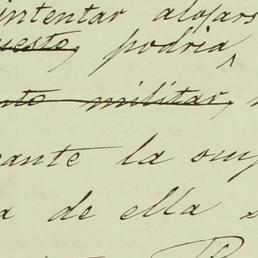 intentar alojars
uesto, podria
nto militar,
ante la
a de ella s